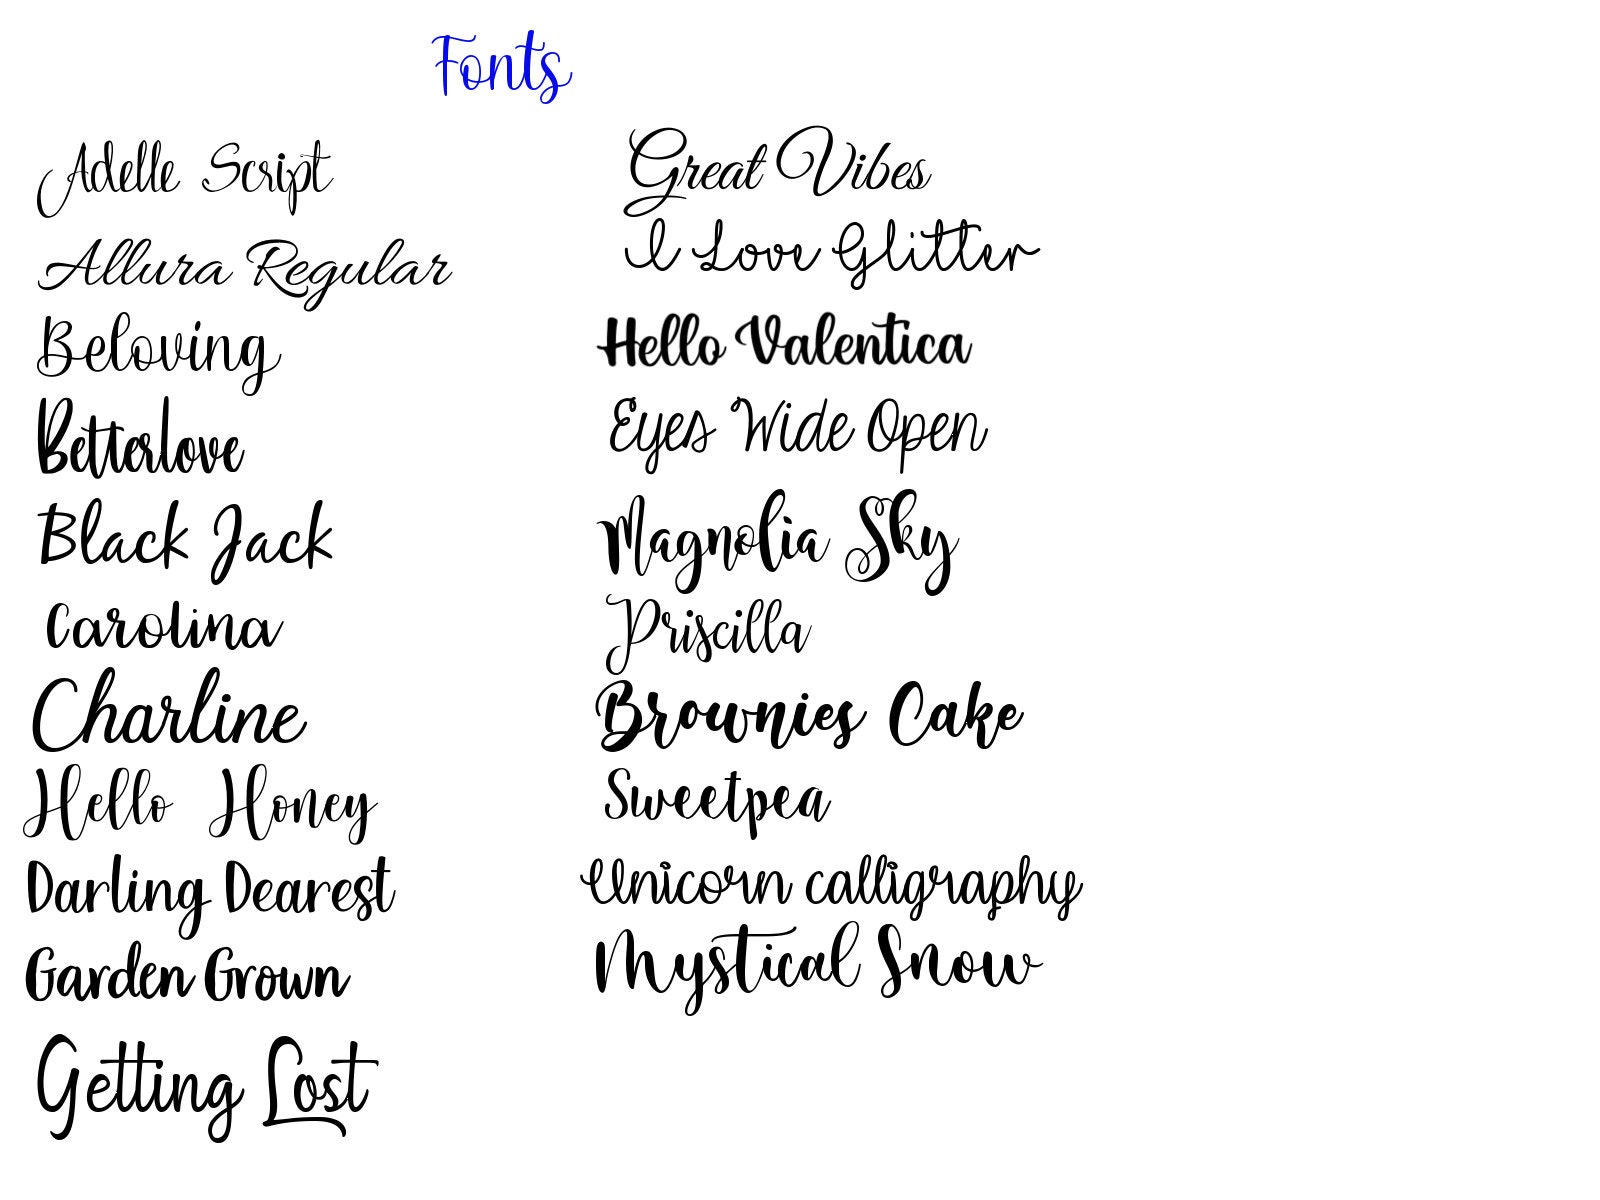 Fonts
Adelle Script
Allura Regular
Beloving
Betterlove
Black Jack
Carolina
Charline
Hello Honey
Darling Dearest
Garden Grown
Getting Lost
Great Vibes
I Love Glitter
Hello Valentica
Eyes Wide Open
Magnolia Sky
Priscilla
Brownies Cake
Sweetpea
Unicorn calligraphy
Mystical Snow